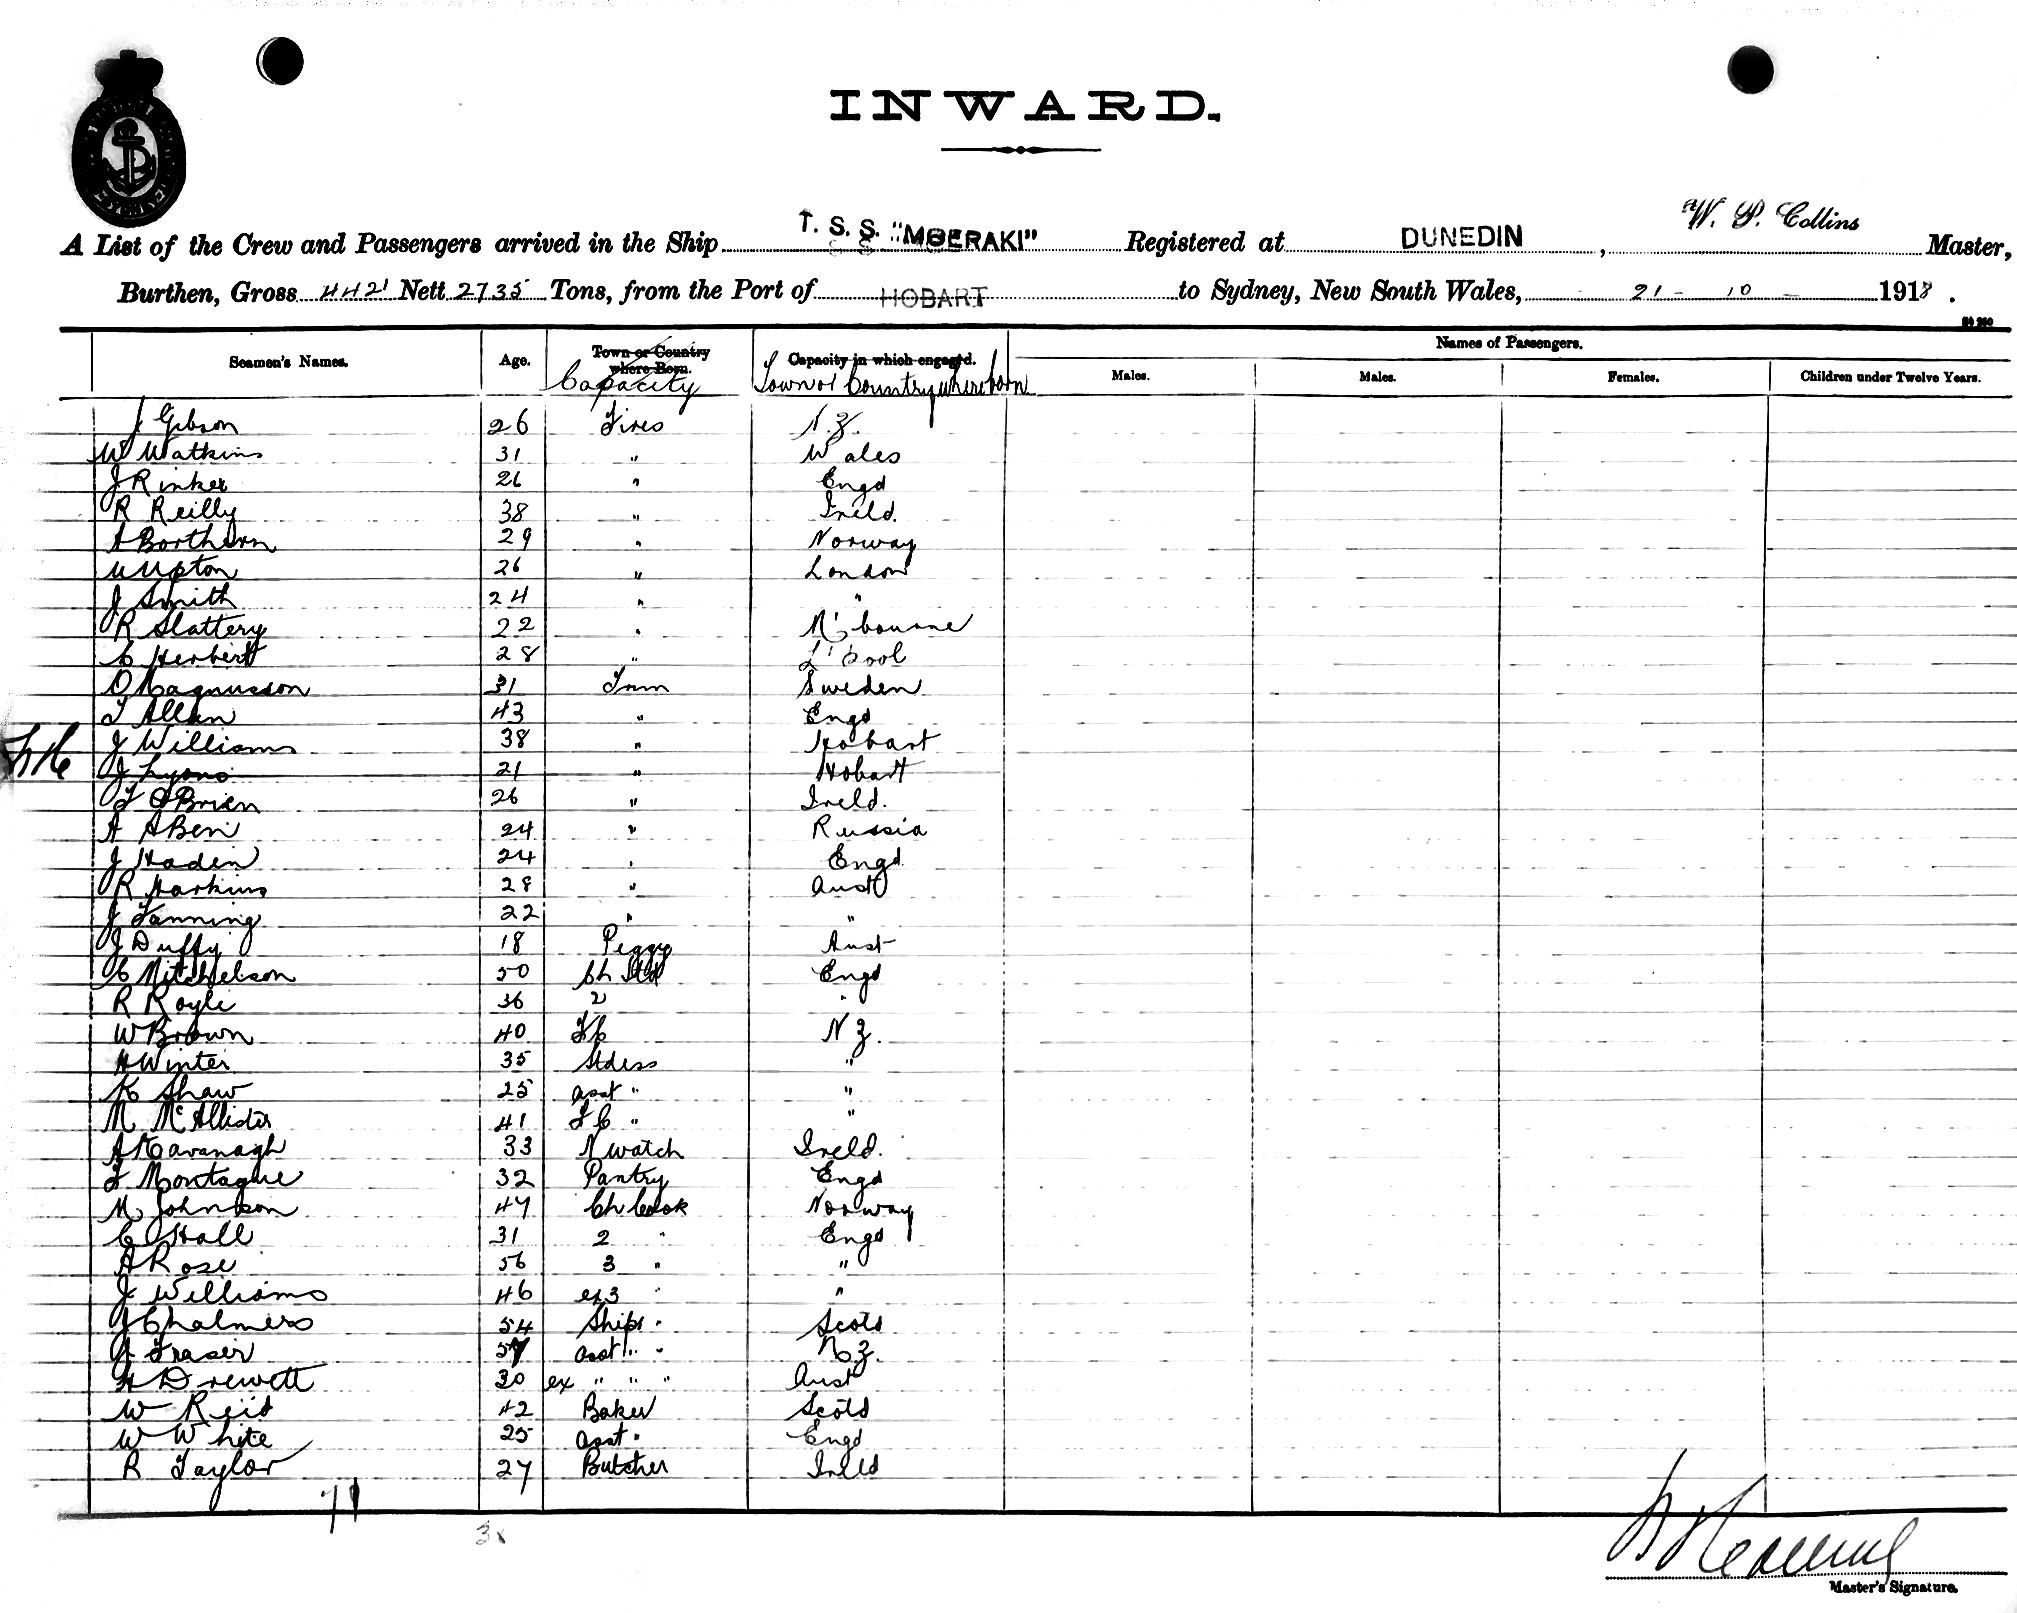 INWARD.
W. P. Collins
A List of the Crew and Passengers arrived in the Ship T. S. S. "MOERAKI" Registered at DUNEDIN, Master,
Burthen, Gross 4421 Nett 2735 Tons, from the Port of HOBART to Sydney, New South Wales, 21 - 10 - 1918.
Seamen's Names. Age. Town or Country where Born. Capacity in which engaged. Names of Passengers.
Capacity Town or Country where born Males. Males. Females. Children under Twelve Years.
J Gibson 26 Fires N.Z.
W Watkins 31 " Wales
J Rinker 26 " Engd
R Reilly 38 " Ireld.
A Borthern 29 " Norway
W Upton 26 " London
J Smith 24 " "
R Slattery 22 " M'bourne
C Herbert 28 " L'pool
O Magnusson 31 Trim Sweden
T Allan 43 " Engd
J Williams 38 " Hobart
J Lyons 21 " Hobart
T O'Brien 26 " Ireld.
A ABen 24 " Russia
J Haden 24 " Engd
R Harkins 28 " Aust
J Fanning 22 " "
J Duffy 18 Peggy Aust
C Mitchelson 50 Ch Std Engd
R Royle 36 2 "
W Brown 40 F C N Z.
H Winter 35 Stdess "
K Shaw 25 asst " "
M McAllister 41 F C " "
A Kavanagh 33 N watch Ireld.
F Montague 32 Pantry Engd
M Johnson 47 Ch Cook Norway
C Hall 31 2 " Engd
A Rose 56 3 " "
J Williams 46 ex 3 " "
J Chalmers 54 Ships " Scotd
A Fraser 57 asst " " N Z.
H Drewett 30 ex " " " Aust
W Reid 42 Baker Scotd
W White 25 asst " Engd
R Taylor 27 Butcher Ireld
71
Master's Signature.